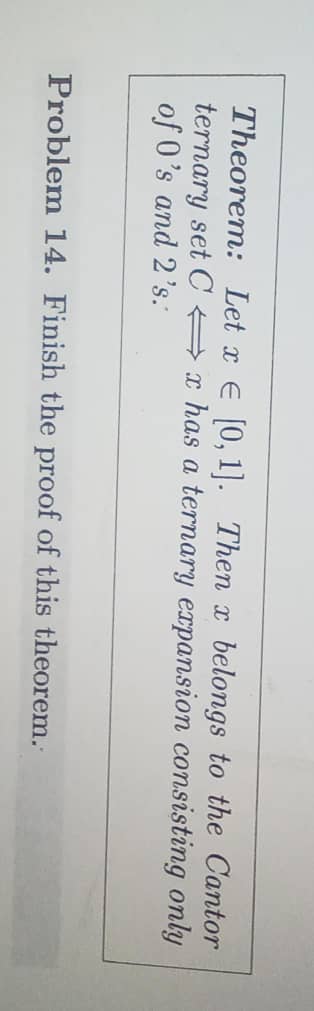 Theorem: Let x ∈ [0, 1]. Then x belongs to the Cantor
ternary set C ⟺ x has a ternary expansion consisting only
of 0's and 2's.
Problem 14. Finish the proof of this theorem.